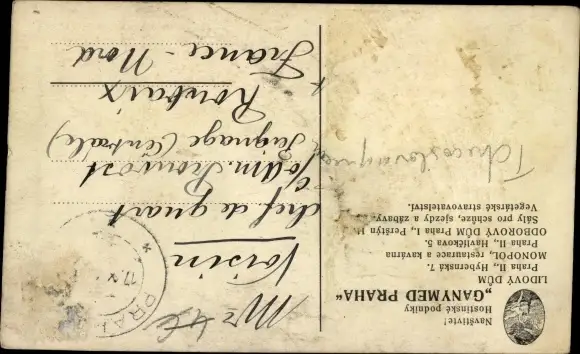 Navštivte!
Hostinské podniky
„GANYMED PRAHA“
LIDOVÝ DŮM
Praha II., Hybernská 7.
MONOPOL, restaurace a kavárna
Praha, II., Havlíčkova 5.
ODBOROVÝ DŮM Praha I., Perštýn 11.
Sály pro schůze, sjezdy a zábavy.
Vegetárské stravovatelství.
Tchecoslovaquie
Mr
Voisin
chef de quart
Peignage (Centrale)
Roubaix
France - Nord